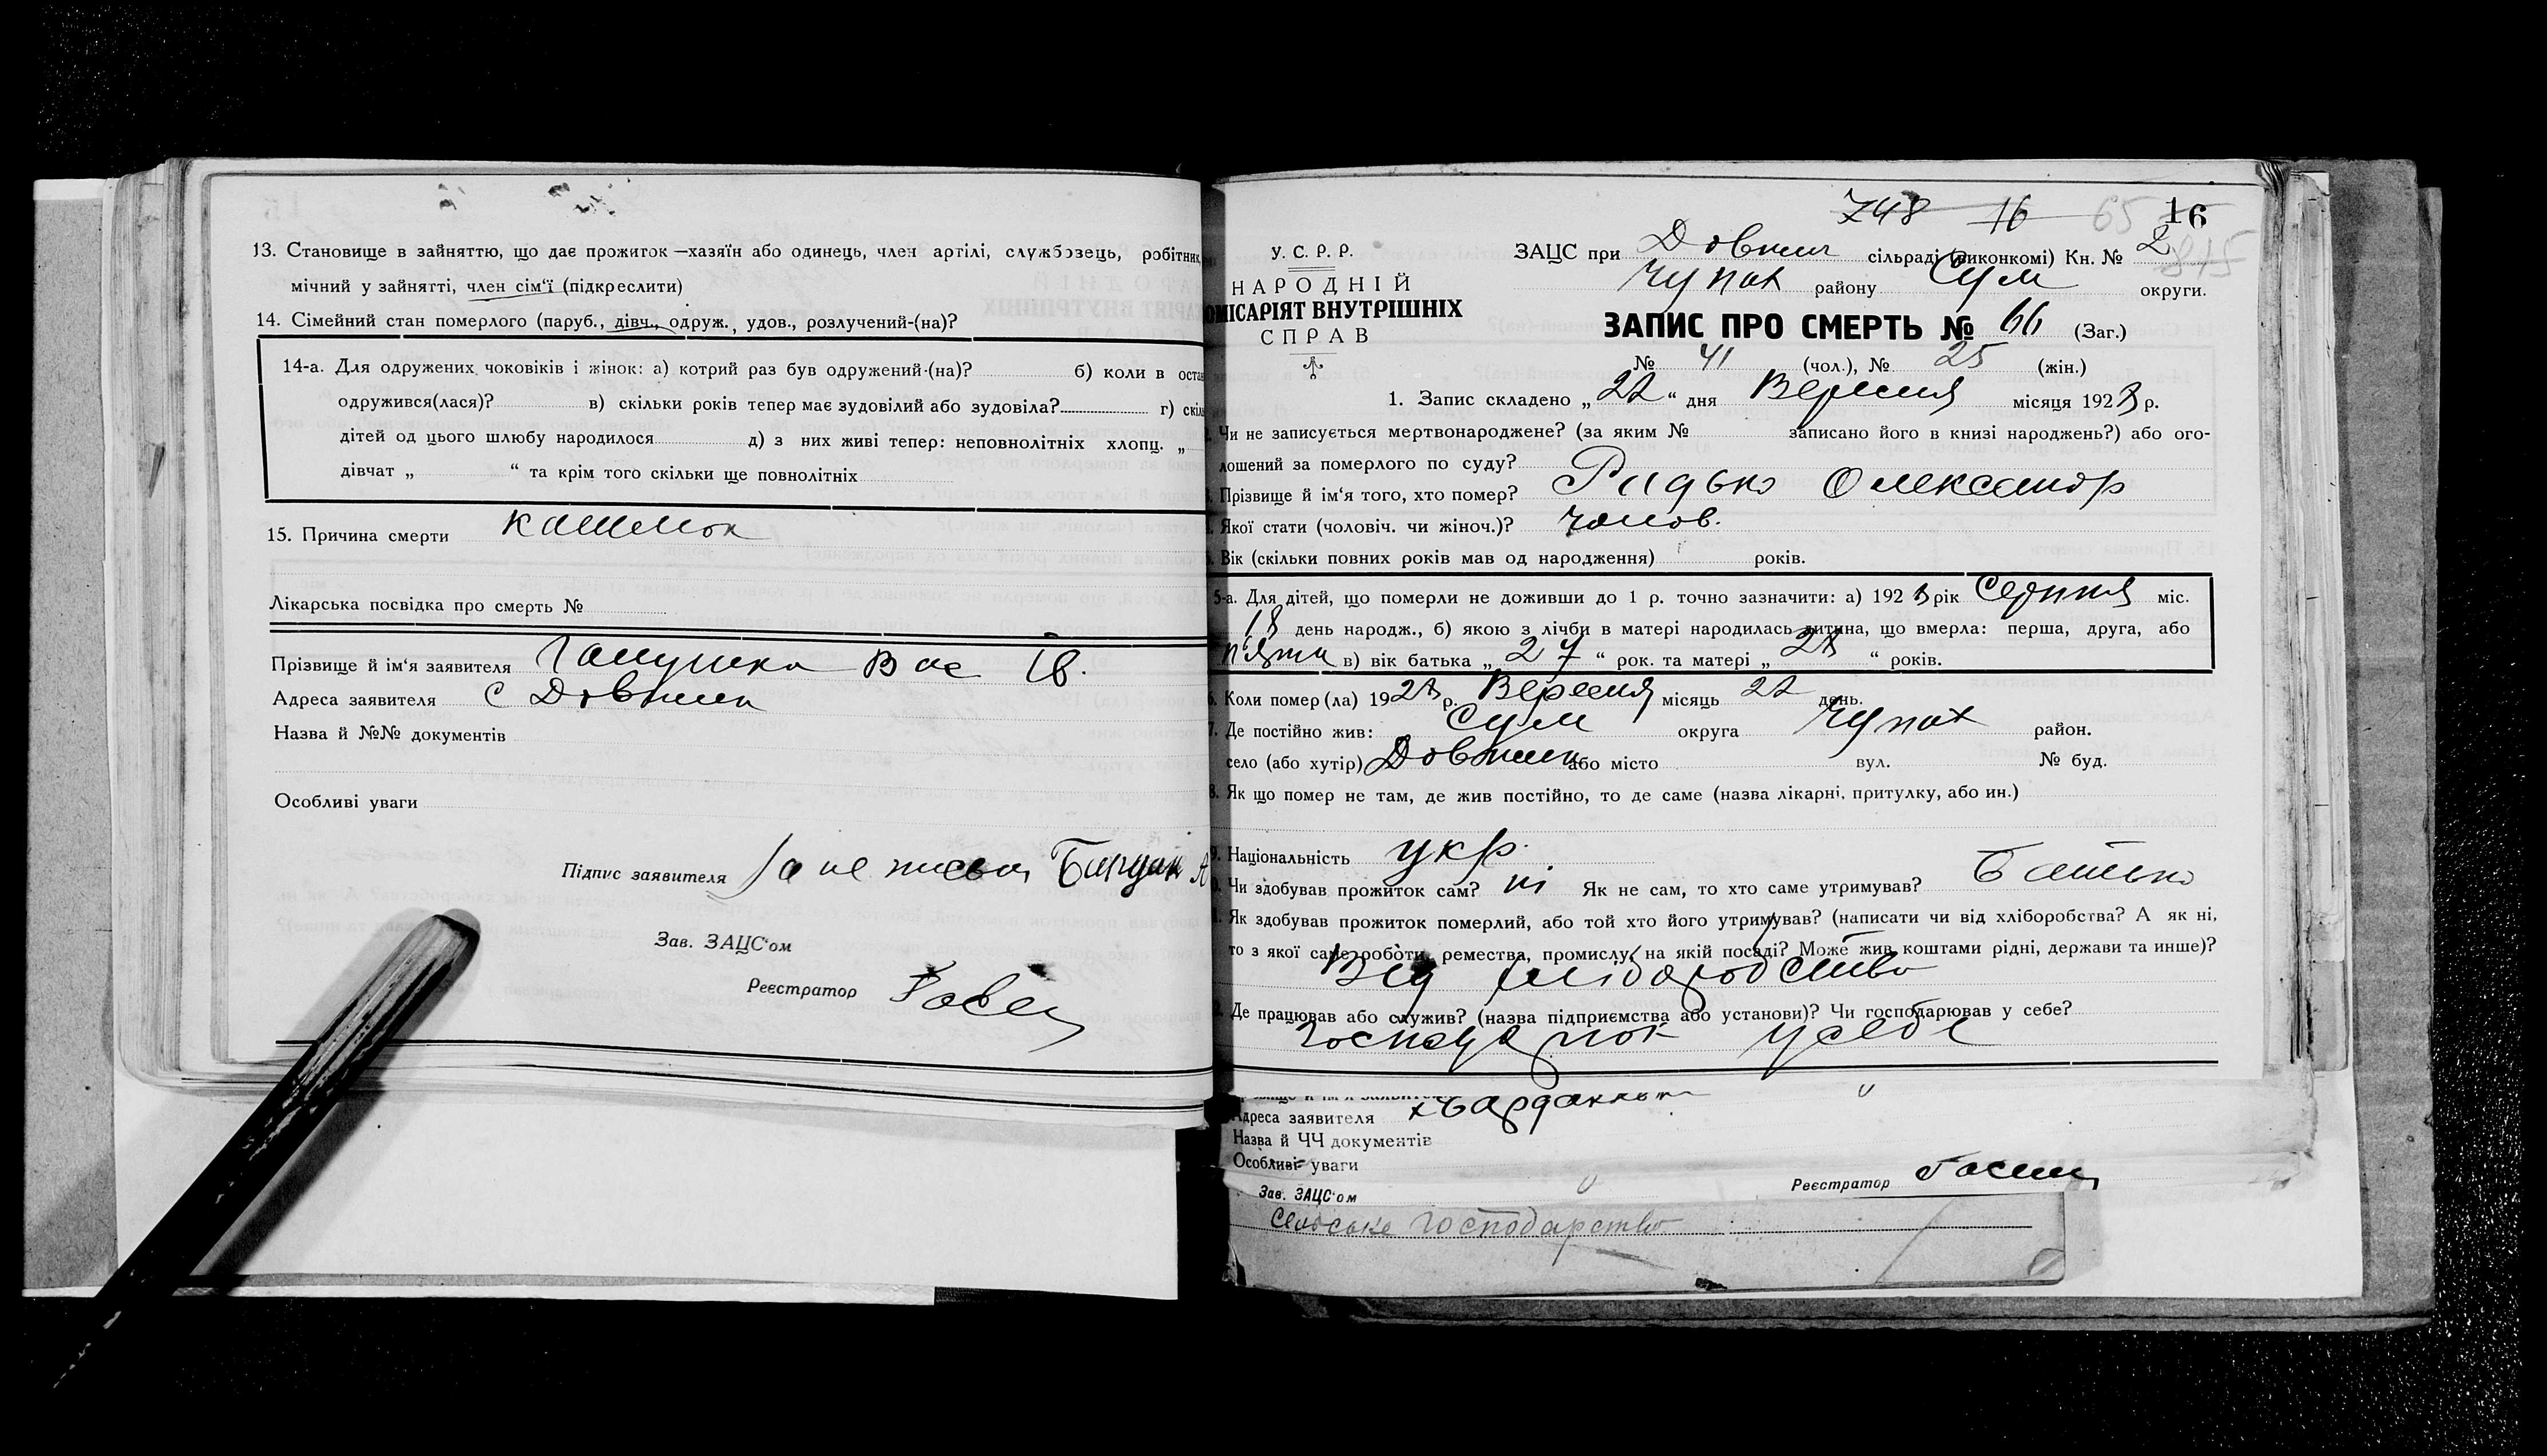 13. Становище в зайняттю, що дає прожиток —хазяїн або одинець, член артілі, службовець, робітник,
мічний у зайнятті, член сім'ї (підкреслити)
14. Сімейний стан померлого (паруб., дівч., одруж., удов., розлучений-(на)?
14-а. Для одружених чоковіків і жінок: а) котрий раз був одружений-(на)? б) коли в оста
одружився(лася)? в) скільки років тепер має зудовілий або зудовіла? г) скіль
дітей од цього шлюбу народилося д) з них живі тепер: неповнолітніх хлопц. „
дівчат „ “ та крім того скільки ще повнолітніх
15. Причина смерти кашлюк
Лікарська посвідка про смерть №
Прізвище й ім'я заявителя Галушка Вас Ів.
Адреса заявителя с Довжик
Назва й №№ документів
Особливі уваги
Підпис заявителя За не письм
Зав. ЗАЦС'ом
Реєстратор
748 16 65 16
815
У. С. Р. Р.
НАРОДНІЙ
ОМІСАРІЯТ ВНУТРІШНІХ
СПРАВ
ЗАЦС при Довжик сільраді (виконкомі) Кн. № 2
Чупах району Сум округи.
ЗАПИС ПРО СМЕРТЬ № 66 (Заг.)
№ 41 (чол.), № 25 (жін.)
1. Запис складено „ 22 “ дня Вересня місяця 1928 р.
Чи не записується мертвонароджене? (за яким № записано його в книзі народжень?) або ого-
лошений за померлого по суду?
Прізвище й ім'я того, хто помер? Ридько Олександр
Якої стати (чоловіч. чи жіноч.)? чолов.
Вік (скільки повних років мав од народження) років.
5-а. Для дітей, що померли не доживши до 1 р. точно зазначити: а) 1928 рік Серпня міс.
18 день народж., б) якою з лічби в матері народилась дитина, що вмерла: перша, друга, або
п'ята в) вік батька „ 27 “ рок. та матері „ 28 “ років.
6. Коли помер (ла) 1928 р. Вересня місяць 22 день.
7. Де постійно жив: Сум округа Чупах район.
село (або хутір) Довжик або місто вул. № буд.
8. Як що помер не там, де жив постійно, то де саме (назва лікарні, притулку, або ин.)
9. Національність укр.
Чи здобував прожиток сам? ні Як не сам, то хто саме утримував? Батько
Як здобував прожиток померлий, або той хто його утримував? (написати чи від хліборобства? А як ні,
то з якої саме роботи, ремества, промислу, на якій посаді? Може жив коштами рідні, держави та инше)?
Від хліборобства
Де працював або служив? (назва підприємства або установи)? Чи господарював у себе?
господарюв у себе
Адреса заявителя
Назва й ЧЧ документів
Особливі уваги
Зав. ЗАЦС'ом Реєстратор
Сельське господарство